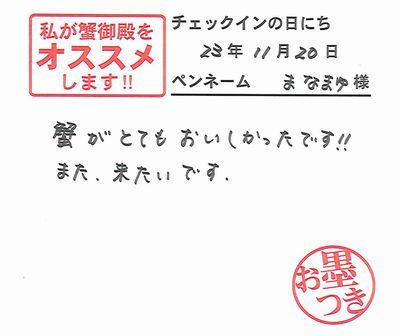 私が蟹御殿を
オススメ
します!!
チェックインの日にち
23年 11月 20日
ペンネーム まなまゆ様
蟹がとてもおいしかったです!!
また、来たいです。
お墨つき